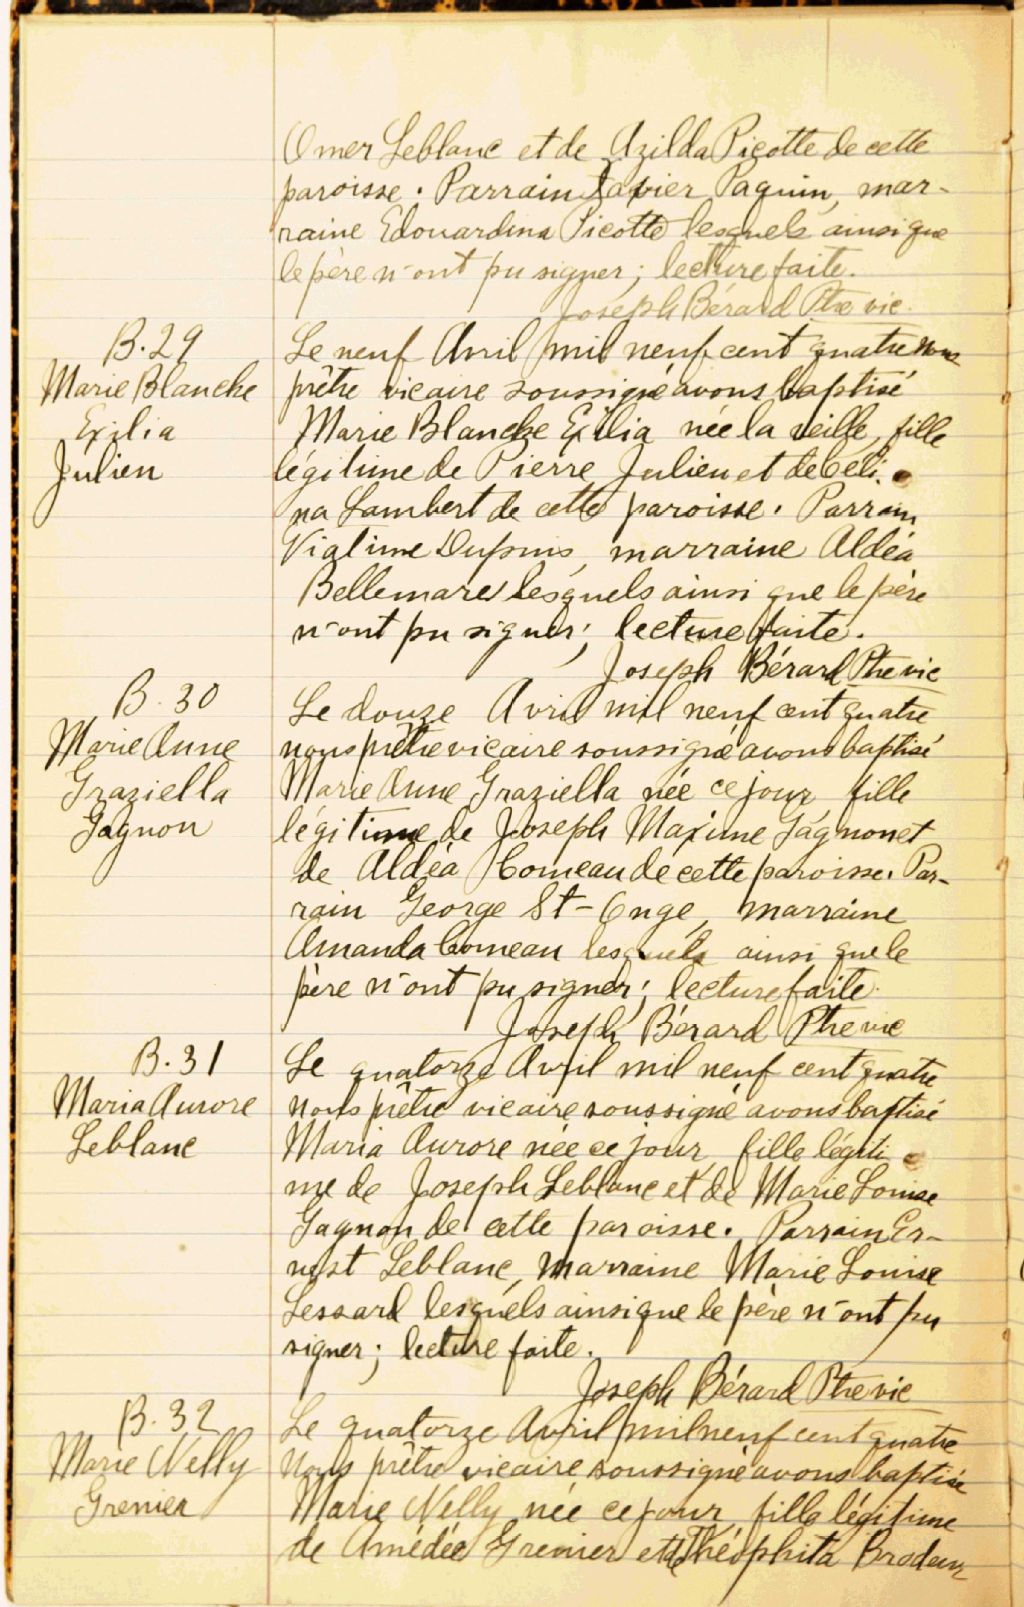 Omer Leblanc et de Azilda Picotte de cette
paroisse. Parrain Xavier Paquin, mar-
raine Edouardina Picotte lesquels ainsi que
le père n'ont pu signer; lecture faite.
Joseph Bérard Ptre vic.
B. 29
Marie Blanche
Exilia
Julien
Le neuf Avril mil neuf cent quatre nous
prêtre vicaire soussigné avons baptisé
Marie Blanche Exilia née la veille, fille
légitime de Pierre Julien et de Céli-
na Lambert de cette paroisse. Parrain
Viatime Dupuis, marraine Aldéa
Bellemare lesquels ainsi que le père
n'ont pu signer; lecture faite.
Joseph Bérard Ptre vic
B. 30
Marie Anne
Graziella
Gagnon
Le douze Avril mil neuf cent quatre
nous prêtre vicaire soussigné avons baptisé
Marie Anne Graziella née ce jour fille
légitime de Joseph Maxime Gagnon et
de Aldéa Comeau de cette paroisse. Par-
rain George St-Onge, marraine
Amanda Comeau lesquels ainsi que le
père n'ont pu signer; lecture faite.
Joseph Bérard Ptre vic
B. 31
Maria Aurore
Leblanc
Le quatorze Avril mil neuf cent quatre
nous prêtre vicaire soussigné avons baptisé
Maria Aurore née ce jour, fille légiti
me de Joseph Leblanc et de Marie Louise
Gagnon de cette paroisse. Parrain Er-
nest Leblanc, marraine Marie Louise
Lessard lesquels ainsi que le père n'ont pu
signer; lecture faite.
Joseph Bérard Ptre vic
B. 32
Marie Nelly
Grenier
Le quatorze Avril mil neuf cent quatre
Nous prêtre vicaire soussigné avons baptisé
Marie Nelly née ce jour, fille légitime
de Amédée Grenier et de Théophita Brodeur